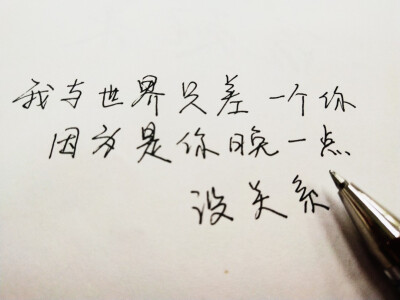 我与世界只差一个你
因为是你晚一点
没关系